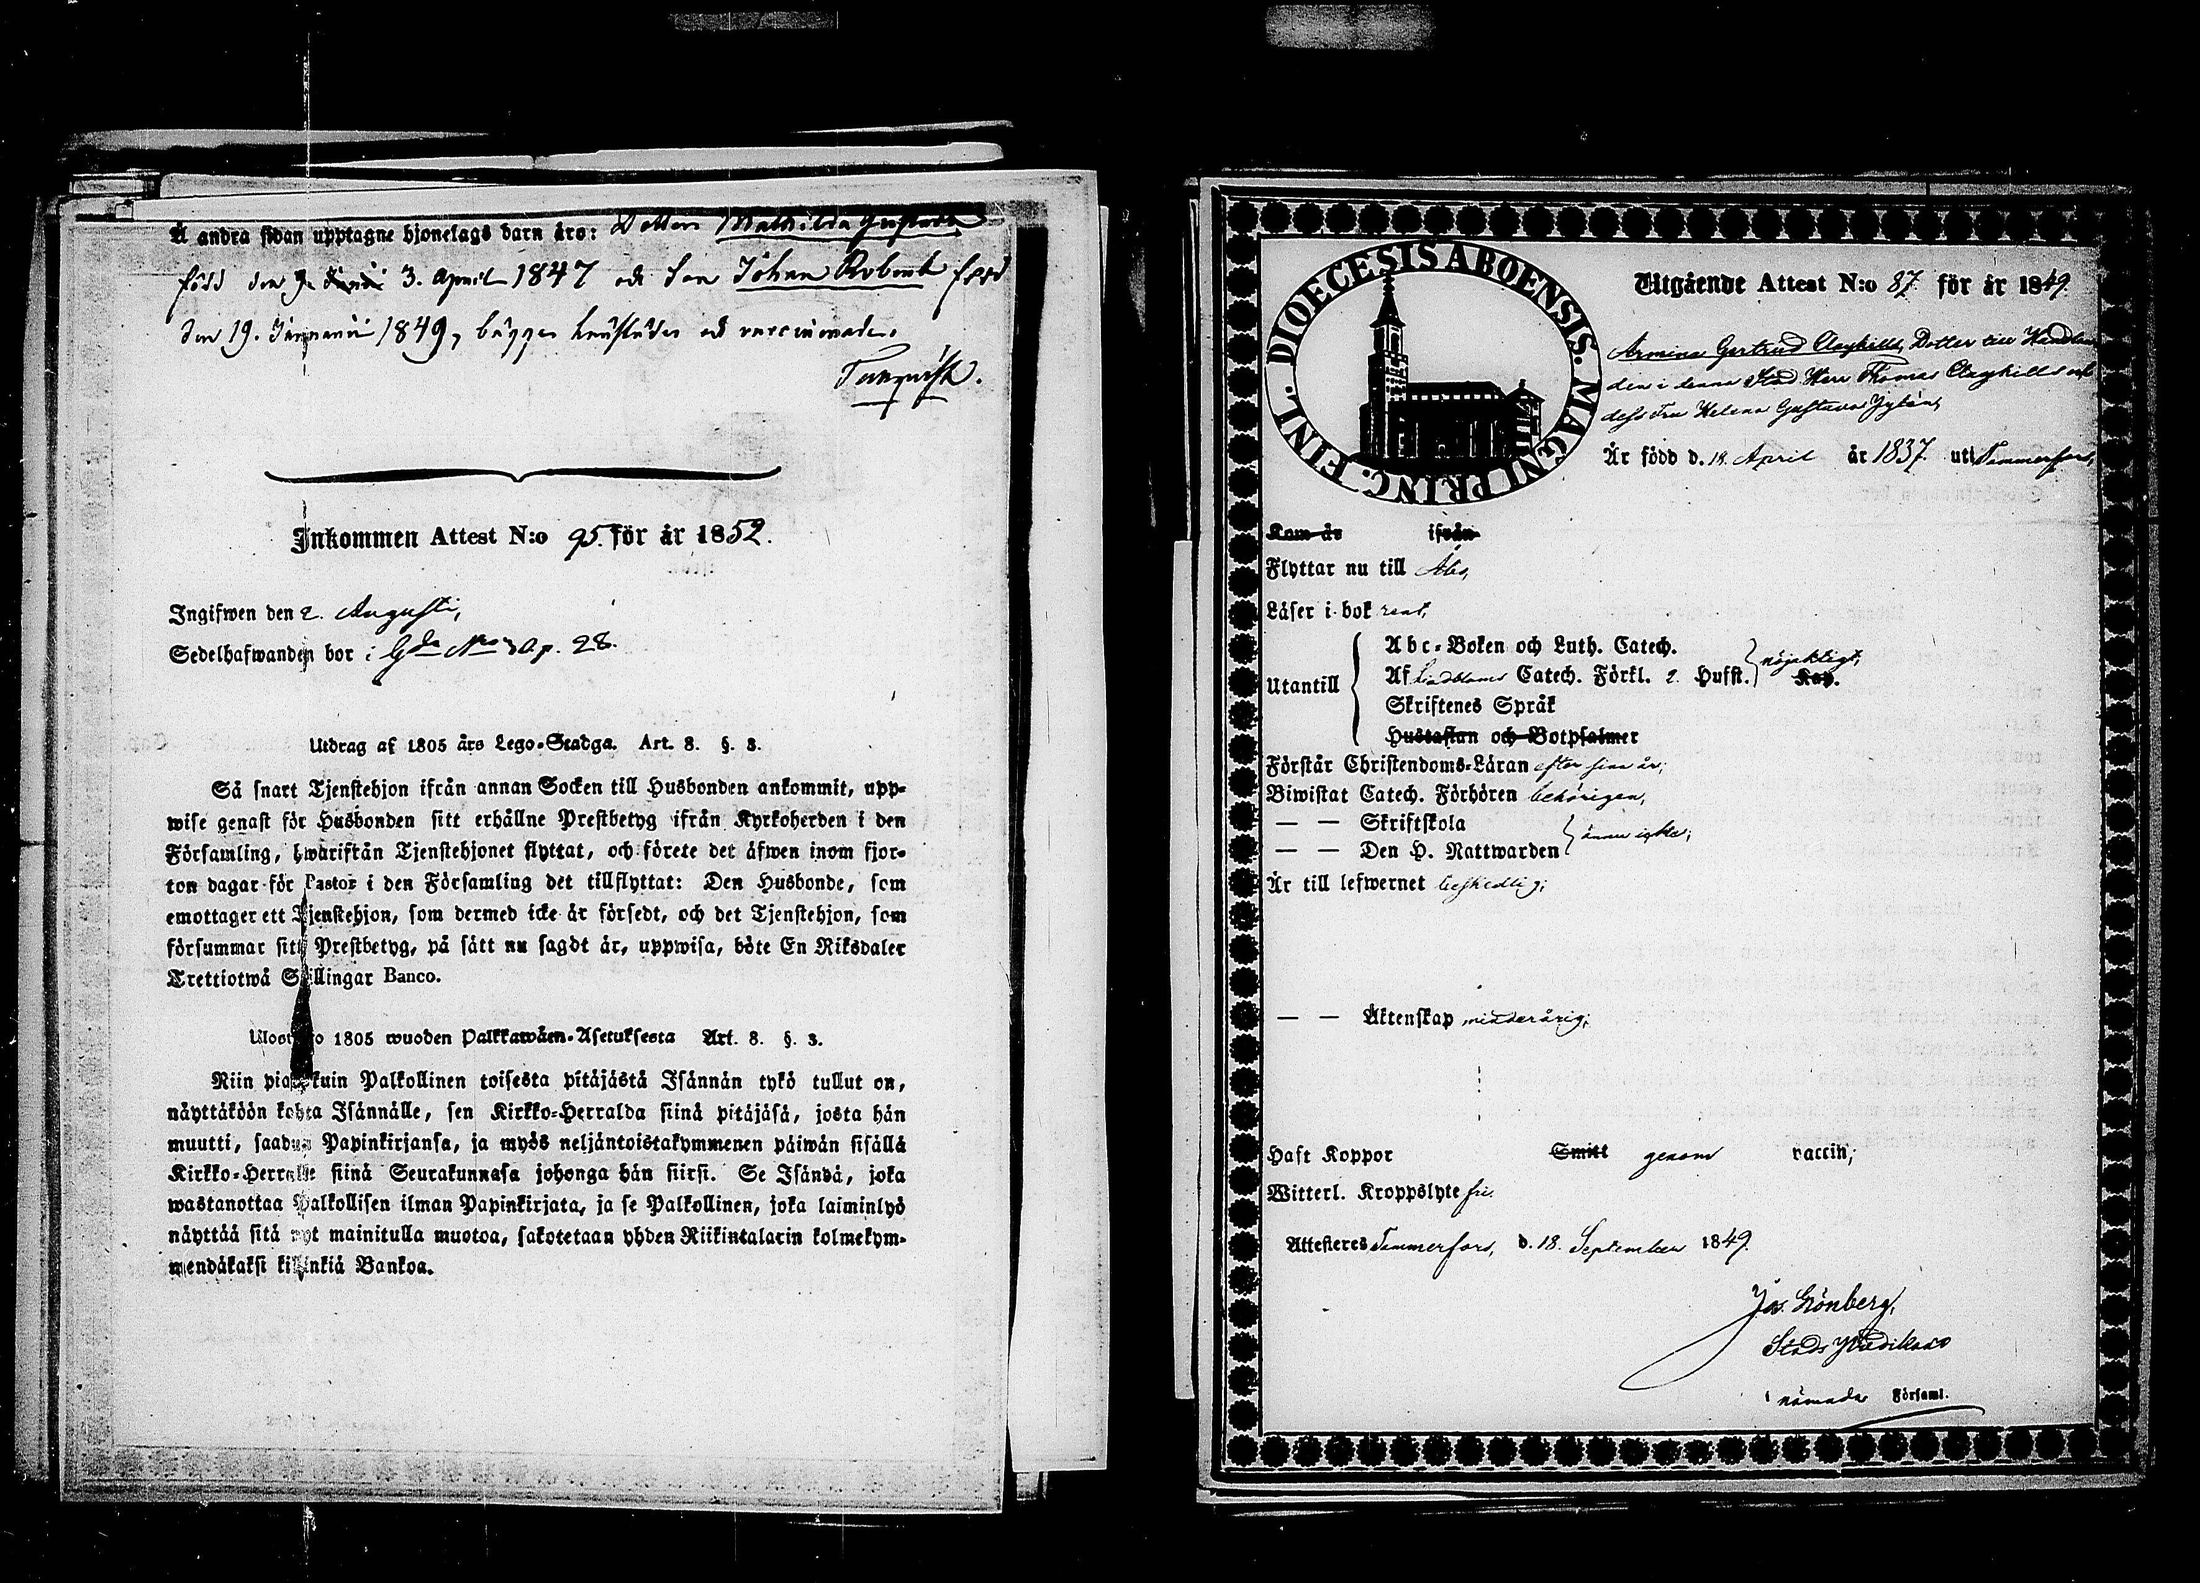 Å andra sidan upptagne hjonelags barn äro: Dottern Mathilda Gustava
född den 3. April 1847 och Son Johan Robert född
den 19. Januarii 1849, bägge hemfödde och vaccinerade.
Inkommen Attest N:o 95. för år 1852.
Ingifwen den 2. Augusti,
Sedelhafwanden bor i Gda No 3 Op. 28.
Utdrag af 1805 års Lego-Stadga. Art. 8. §. 3.
Så snart Tjenstehjon ifrån annan Socken till Husbonden ankommit, upp-
wise genast för Husbonden sitt erhållne Prestbetyg ifrån Kyrkoherden i den
Församling, hwarifrån Tjenstehjonet flyttat, och förete det äfwen inom fjor-
ton dagar för Pastor i den Församling det tillflyttat: Den Husbonde, som
emottager ett Tjenstehjon, som dermed icke är försedt, och det Tjenstehjon, som
försummar sitt Prestbetyg, på sätt nu sagdt är, uppwisa, böte En Riksdaler
Trettiotwå Skillingar Banco.
Ulosveto 1805 wuoden Palkkawäen-Asetuksesta Art. 8. §. 3.
Niin pian kuin Palkollinen toisesta pitäjästä Isännän tykö tullut on,
näyttäköön kohta Isännälle, sen Kirkko-Herralda siinä pitäjäsä, josta hän
muutti, saadun Papinkirjansa, ja myös neljäntoistakymmenen päiwän sisällä
Kirkko-Herralle siinä Seurakunnasa johonga hän siirsi. Se Isändä, joka
wastanottaa Palkollisen ilman Papinkirjata, ja se Palkollinen, joka laiminlyö
näyttää sitä nyt mainitulla muotoa, sakotetaan yhden Riikintalarin kolmekym-
mendäkaksi killinkiä Bankoa.
DIOECESIS ABOENSIS. MAGNI PRINC. FINL.
Utgående Attest N:o 87 för år 1849.
Armina Gertrud Clayhills, Dotter till Handlan-
den i denna Stad Herr Thomas Clayhills och
dess Fru Helena Gustava Jylén,
Är född d. 18. April år 1837 uti Tammerfors,
Kom år ifrån
Flyttar nu till Åbo,
Läser i bok rent,
Utantill
Abc-Boken och Luth. Catech.
Af Lindbloms Catech. Förkl. 2. Hufst. nöjaktigt, Kap.
Skriftenes Språk
Hustaflan och Botpsalmer
Förstår Christendoms-Läran efter sina år;
Biwistat Catech. Förhören behörigen,
— — Skriftskola
— — Den H. Nattwarden ännu icke;
Är till lefwernet beskedlig;
— — Äktenskap minderårig;
Haft Koppor Smitt genom vaccin;
Witterl. Kroppslyte fri.
Attesteres Tammerfors, d. 18. September 1849.
Jos. Grönberg,
Stads Predikant
i nämnda Församl.